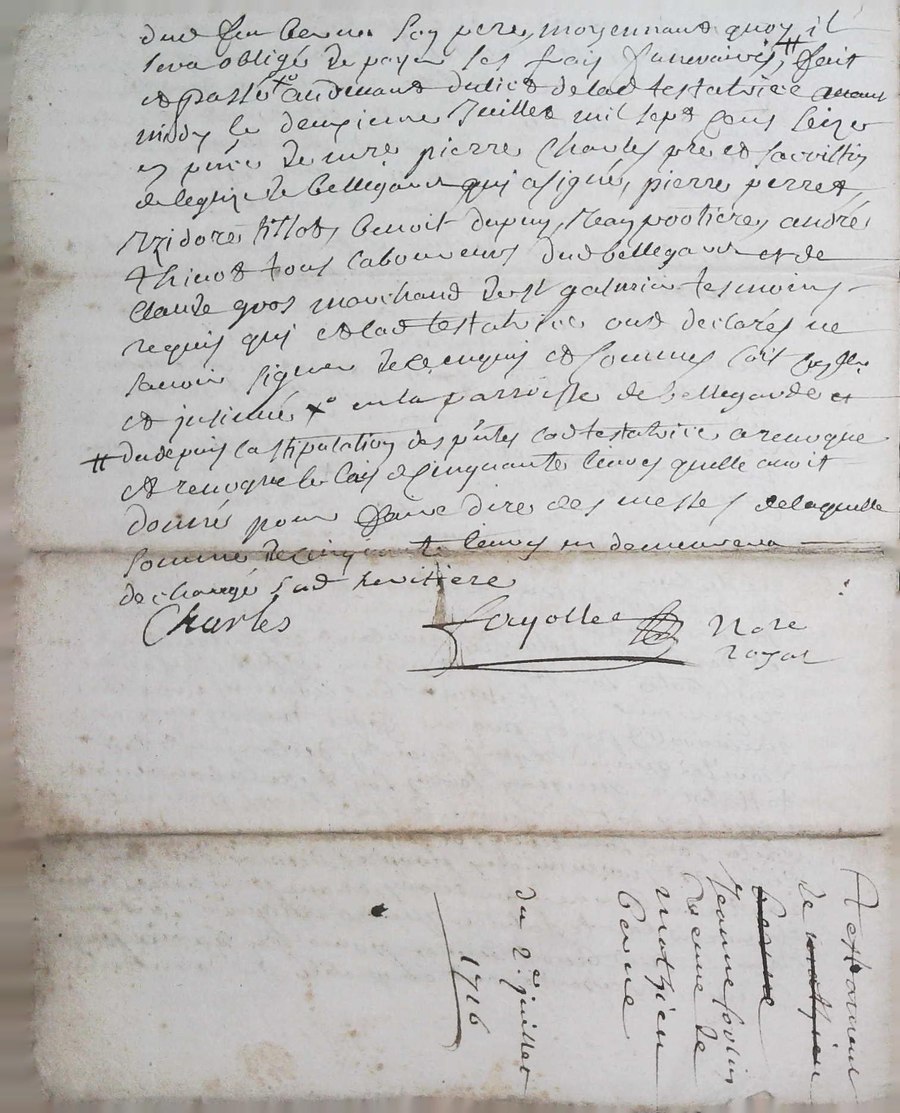 dud feu berne son pere, moyennant quoy il
sera obligé de payer les frais funeraires, # fait
et passé x° au devant du lict de lad testatrice avant
midy le deuxieme Juillet mil sept cens seize
en pnce de mre pierre Charles pre et sacristin
de leglize de bellegarde qui a signé, pierre perret,
Izidore benoit dupuy, Jean pootiere, andré
thinot tous laboureurs dud bellegarde et de
Claude gros marchand de st galmier tesmoins
requis qui et lad testatrice ont declarés ne
savoir signer de ce enquis et sommes soit
et insinué x° en la parroisse de bellegarde et
# du depuis la stipulation des pntes lad testatrice a revoqué
et revoque le les de cinquante livres quelle avoit
donné pour faire dire des messes de laquelle
somme de cinquante livres en demeurera
dechargé sad heritiere
Charles Fayolle Nore
royal
Testament
de mathieu
berne
Jeanne
vefve de
mathieu
berne
du 2e juillet
1716